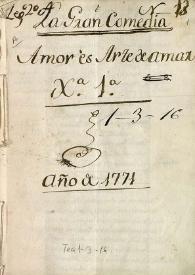 Leg.º 2.º
La Gran Comedia
Amor es Arte de amar
Xª. 1ª.
1-3-16
Año de 1771
Tea 1-3-16